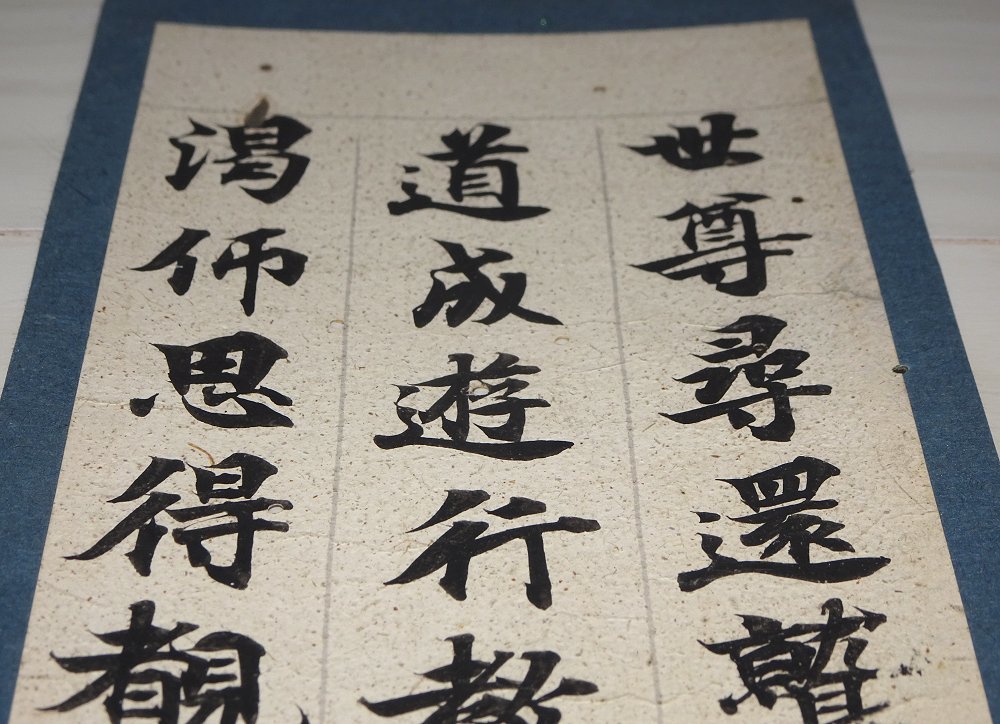 世尊尋還
道成遊行教
渇仰思得覩